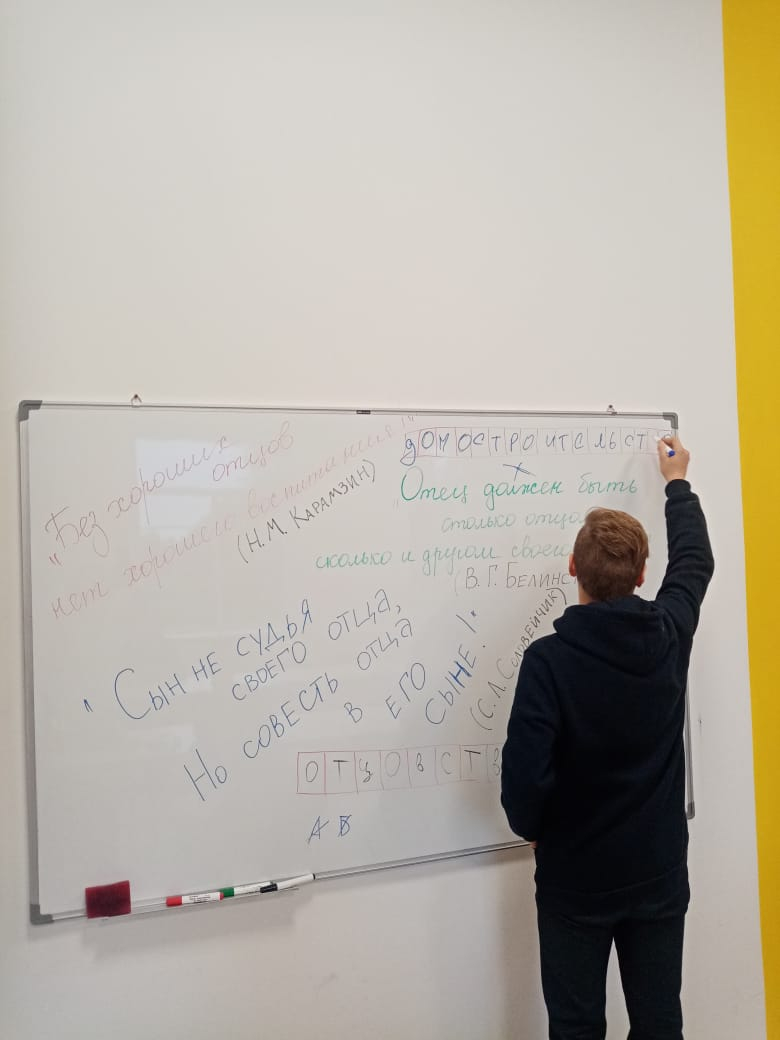 „Без хороших
отцов
нет хорошего воспитания!"
(Н.М. Карамзин)
ДОМОСТРОИТЕЛЬСТ
„Отец должен быть
столько отцо
сколько и другом своего
(В.Г. Белинс
„Сын не судья
своего отца,
Но совесть отца
в его
сыне!"
(С.Л. Соловейчик)
ОТЦОВСТВ
А Б